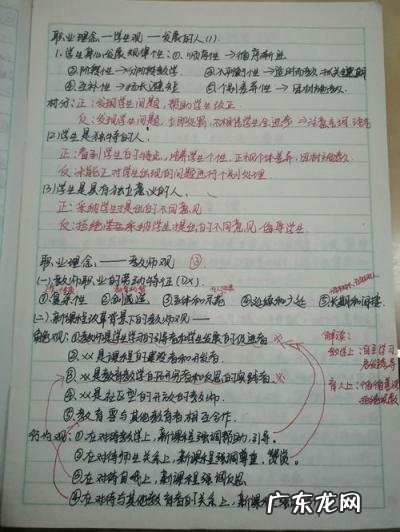 职业理念—学生观—发展的人(1).
1.学生身心发展规律性:①.顺序性→循序渐进
②阶段性→分阶段教学 ③不平衡性→适时而教,抓关键期
④互补性→扬长避短 ⑤个别差异性→因材施教
材分:正:发现学生问题,帮助学生改正.
反:发现学生问题,
(2)学生是独特的人.
正:看到学生的特点,培养学生个性,正视个体差异,因材施教.
反:未能正对学生出现的问题进行个别处理
(3)学生是具有独立意义的人.
正:采纳学生提出的不同意见
反:拒绝学生提出的不同意见,侮辱学生
职业理念.——教师观 ③
(一)教师职业的劳动特征(DX)
①复杂性 ②创造性 ③主体和示范 ④连续和广延 ⑤长期和间接
(二).新课程改革背景下的教师观——
角色观:①教师是学生学习的引导者和学生发展的促进者
②xx是课程的建设者和开发者.
③xx是教育教学的研究者和反思的实践者.
④xx是社区型的开放的教师.
⑤教育要与其他教育者相互合作.
行为观:①在对待教学上,新课程强调帮助,引导.
②在对待师生关系上,新课程强调尊重,赞赏.
③在对待自我上,新课程强调反思
④在对待与其他教育者的关系上,新课程强调
解读:
教学上:自主学习
育人上:
广东龙网